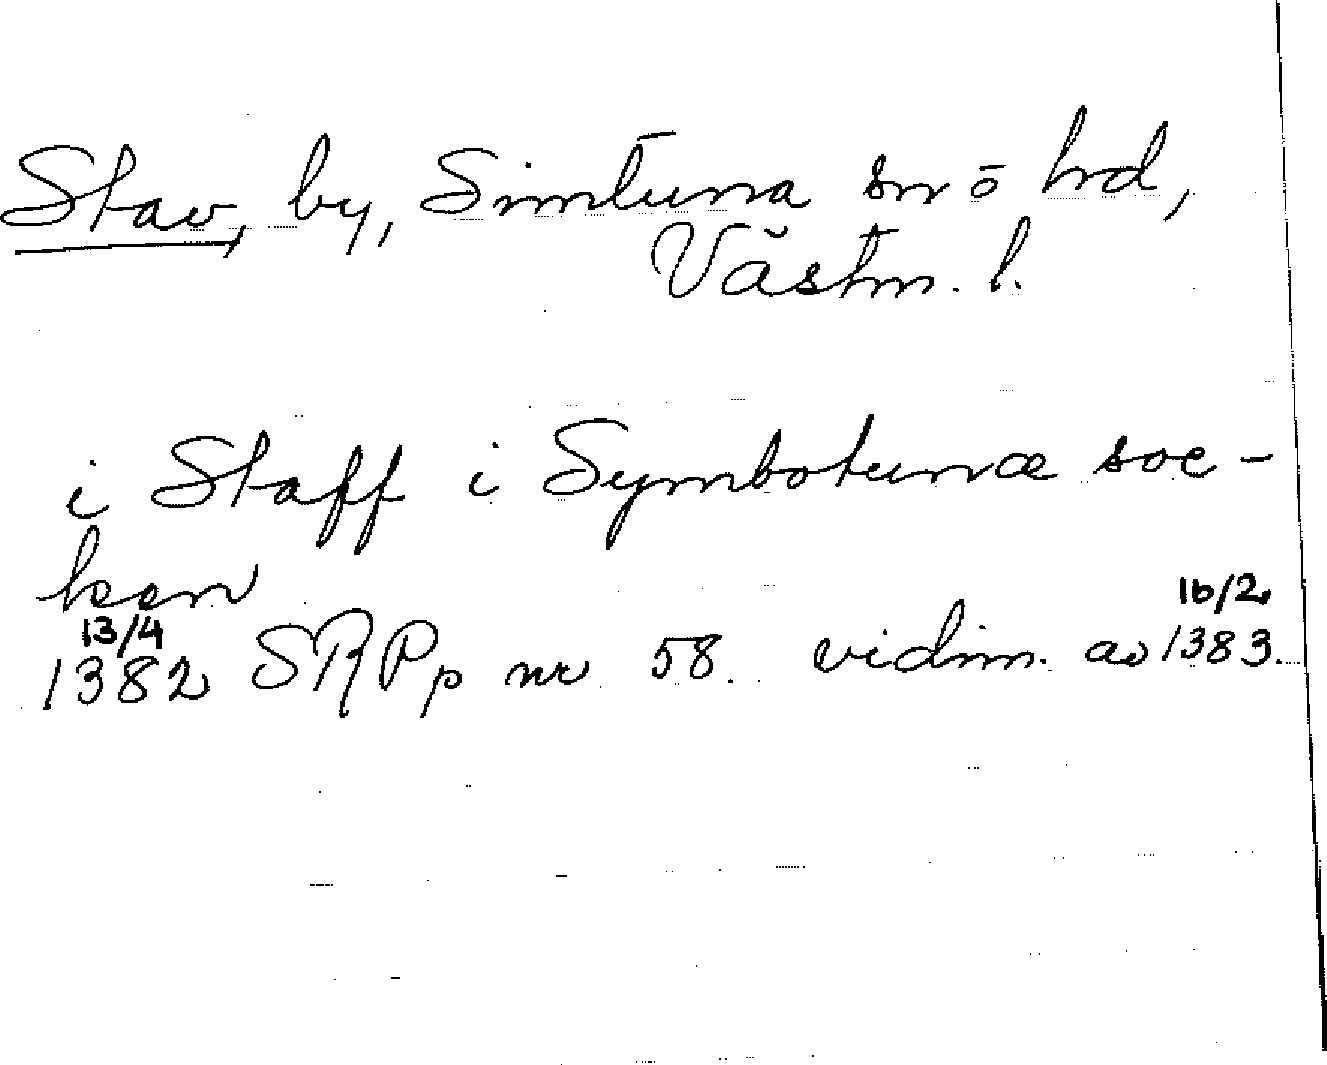 Stav, by, Simtuna sn o hrd,
Västm. l.
i Staff i Symbotuna soc-
ken
13/4 16/2
1382 SRPp nr 58. vidim. av 1383.